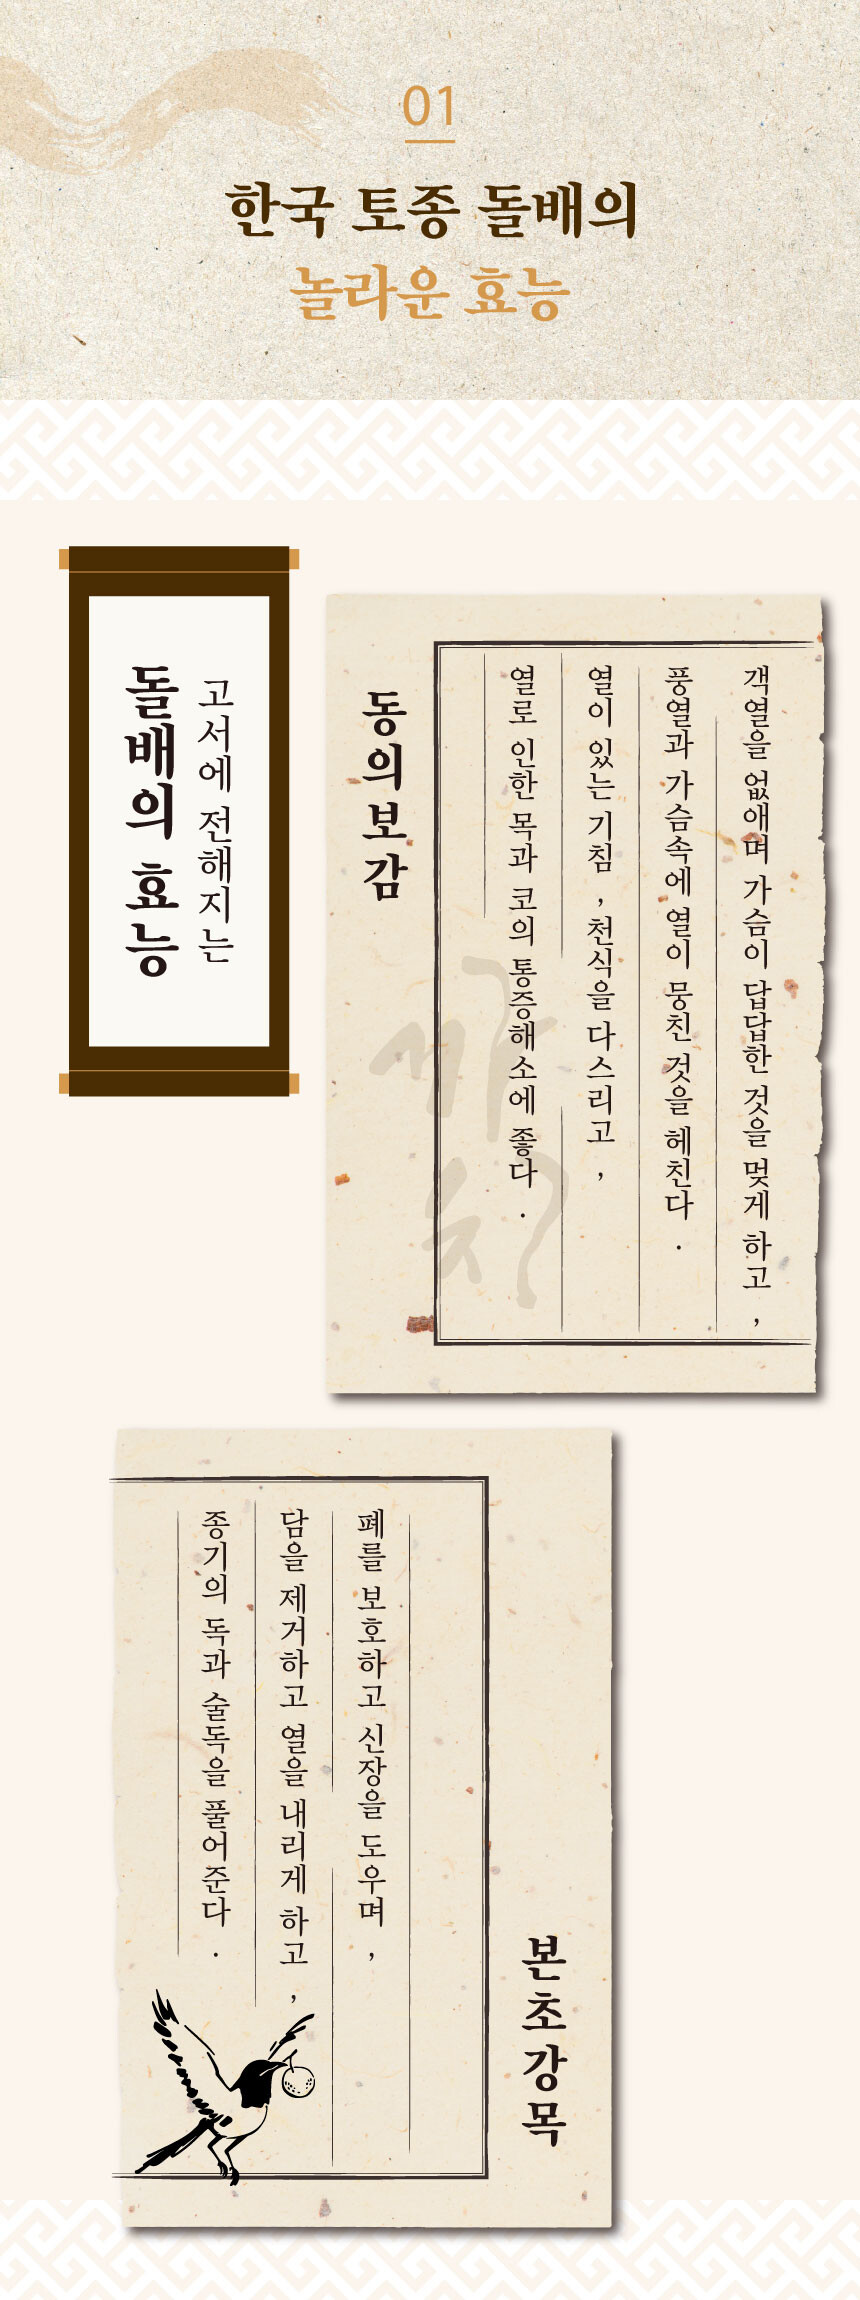 01
한국 토종 돌배의
놀라운 효능
고서에 전해지는
돌배의 효능
동의보감
객열을 없애며 가슴이 답답한 것을 멎게 하고,
풍열과 가슴속에 열이 뭉친 것을 헤친다.
열이 있는 기침, 천식을 다스리고,
열로 인한 목과 코의 통증해소에 좋다.
까치
본초강목
폐를 보호하고 신장을 도우며,
담을 제거하고 열을 내리게 하고,
종기의 독과 술독을 풀어준다.